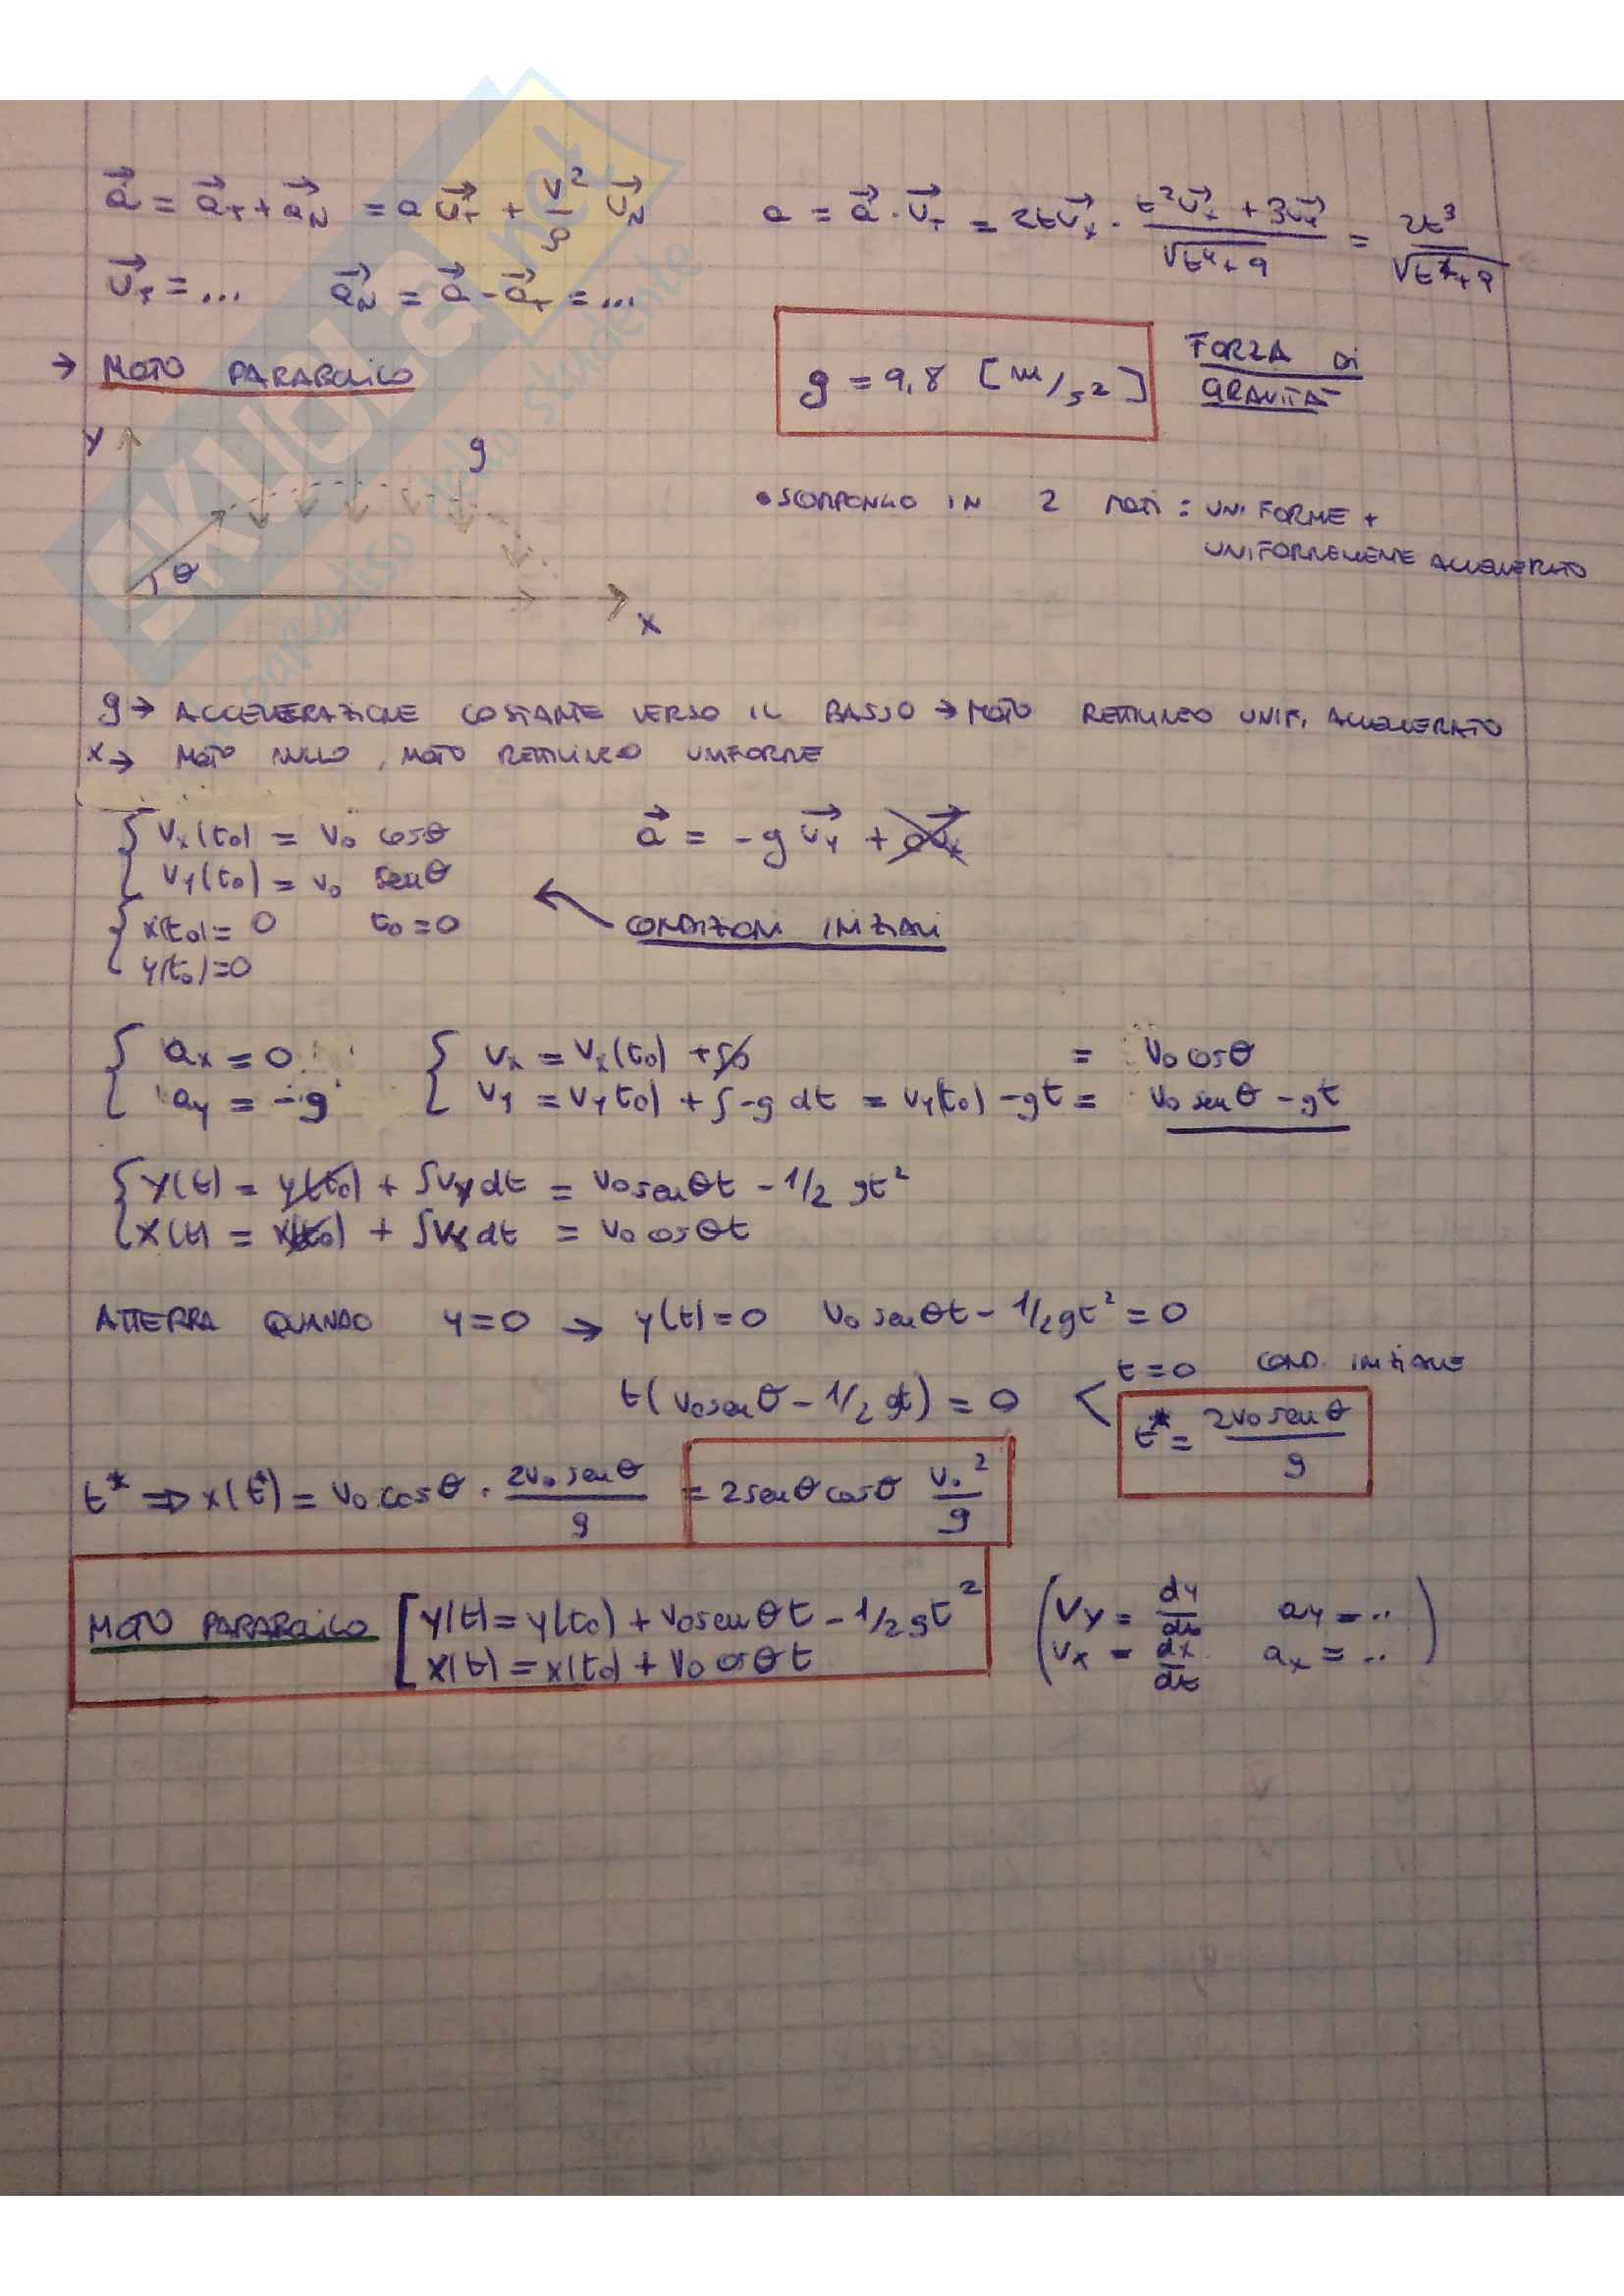 a⃗ = a⃗_T + a⃗_N = a u⃗_T + v²/ρ u⃗_N
a = a⃗ · u⃗_T = 2t u⃗_x · (t² u⃗_x + 3 u⃗_y)/√(t⁴+9) = 2t³/√(t⁴+9)
u⃗_T = ... a⃗_N = a⃗ - a⃗_T = ...
→ MOTO PARABOLICO
g = 9,8 [m/s²]
FORZA DI
GRAVITÀ
y
g
θ
x
• SCOMPONGO IN 2 MOTI : UNIFORME +
UNIFORMEMENTE ACCELERATO
g → ACCELERAZIONE COSTANTE VERSO IL BASSO → MOTO RETTILINEO UNIF. ACCELERATO
x → MOTO NULLO, MOTO RETTILINEO UNIFORME
{ Vx(t₀) = V₀ cosθ
Vy(t₀) = V₀ senθ
a⃗ = -g u⃗_y + a u⃗_x
{ x(t₀) = 0 t₀ = 0
y(t₀) = 0
CONDIZIONI INIZIALI
{ ax = 0 { Vx = Vx(t₀) + ∫0 = V₀ cosθ
ay = -g Vy = Vy(t₀) + ∫-g dt = Vy(t₀) - gt = V₀ senθ - gt
{ y(t) = y(t₀) + ∫Vy dt = V₀ senθt - 1/2 gt²
x(t) = x(t₀) + ∫Vx dt = V₀ cosθt
ATTERRA QUANDO y=0 → y(t)=0 V₀ senθt - 1/2 gt² = 0
t(V₀senθ - 1/2 gt) = 0 < t=0 COND. INIZIALE
t* = 2V₀ senθ/g
t* ⇒ x(t*) = V₀ cosθ · 2V₀ senθ/g = 2senθcosθ V₀²/g
MOTO PARABOLICO [ y(t) = y(t₀) + V₀senθt - 1/2 gt²
x(t) = x(t₀) + V₀ cosθt
( Vy = dy/dt ay = ..
Vx = dx/dt ax = .. )
SKUOLA.net
il paradiso dello studente